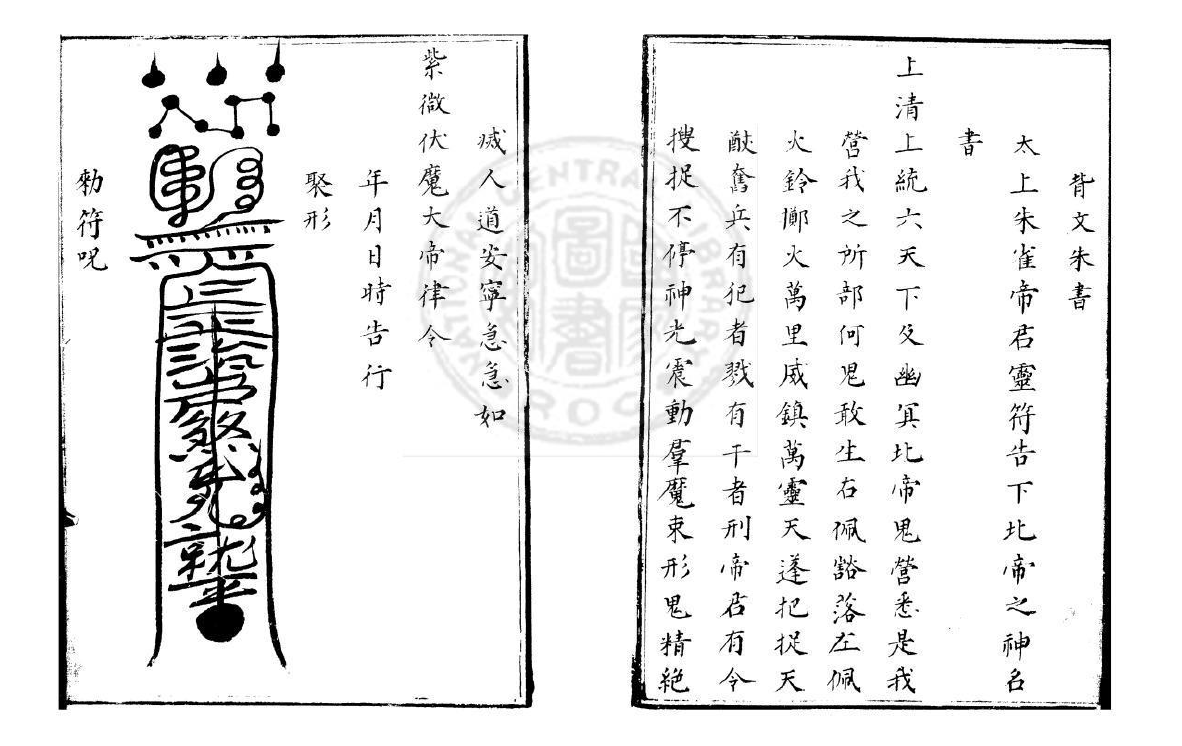 背文朱書
太上朱雀帝君靈符告下北帝之神名
書
上清上統六天下及幽冥北帝鬼營悉是我
營我之所部何鬼敢生右佩豁落左佩
火鈴擲火萬里威鎮萬靈天蓬把捉天
猷奮兵有犯者戮有干者刑帝君有令
搜捉不停神光震動羣魔束形鬼精絕
滅人道安寧急急如
紫微伏魔大帝律令
年月日時告行
聚形
勑符呪
NATIONAL CENTRAL LIBRARY
R.O.C
圖書